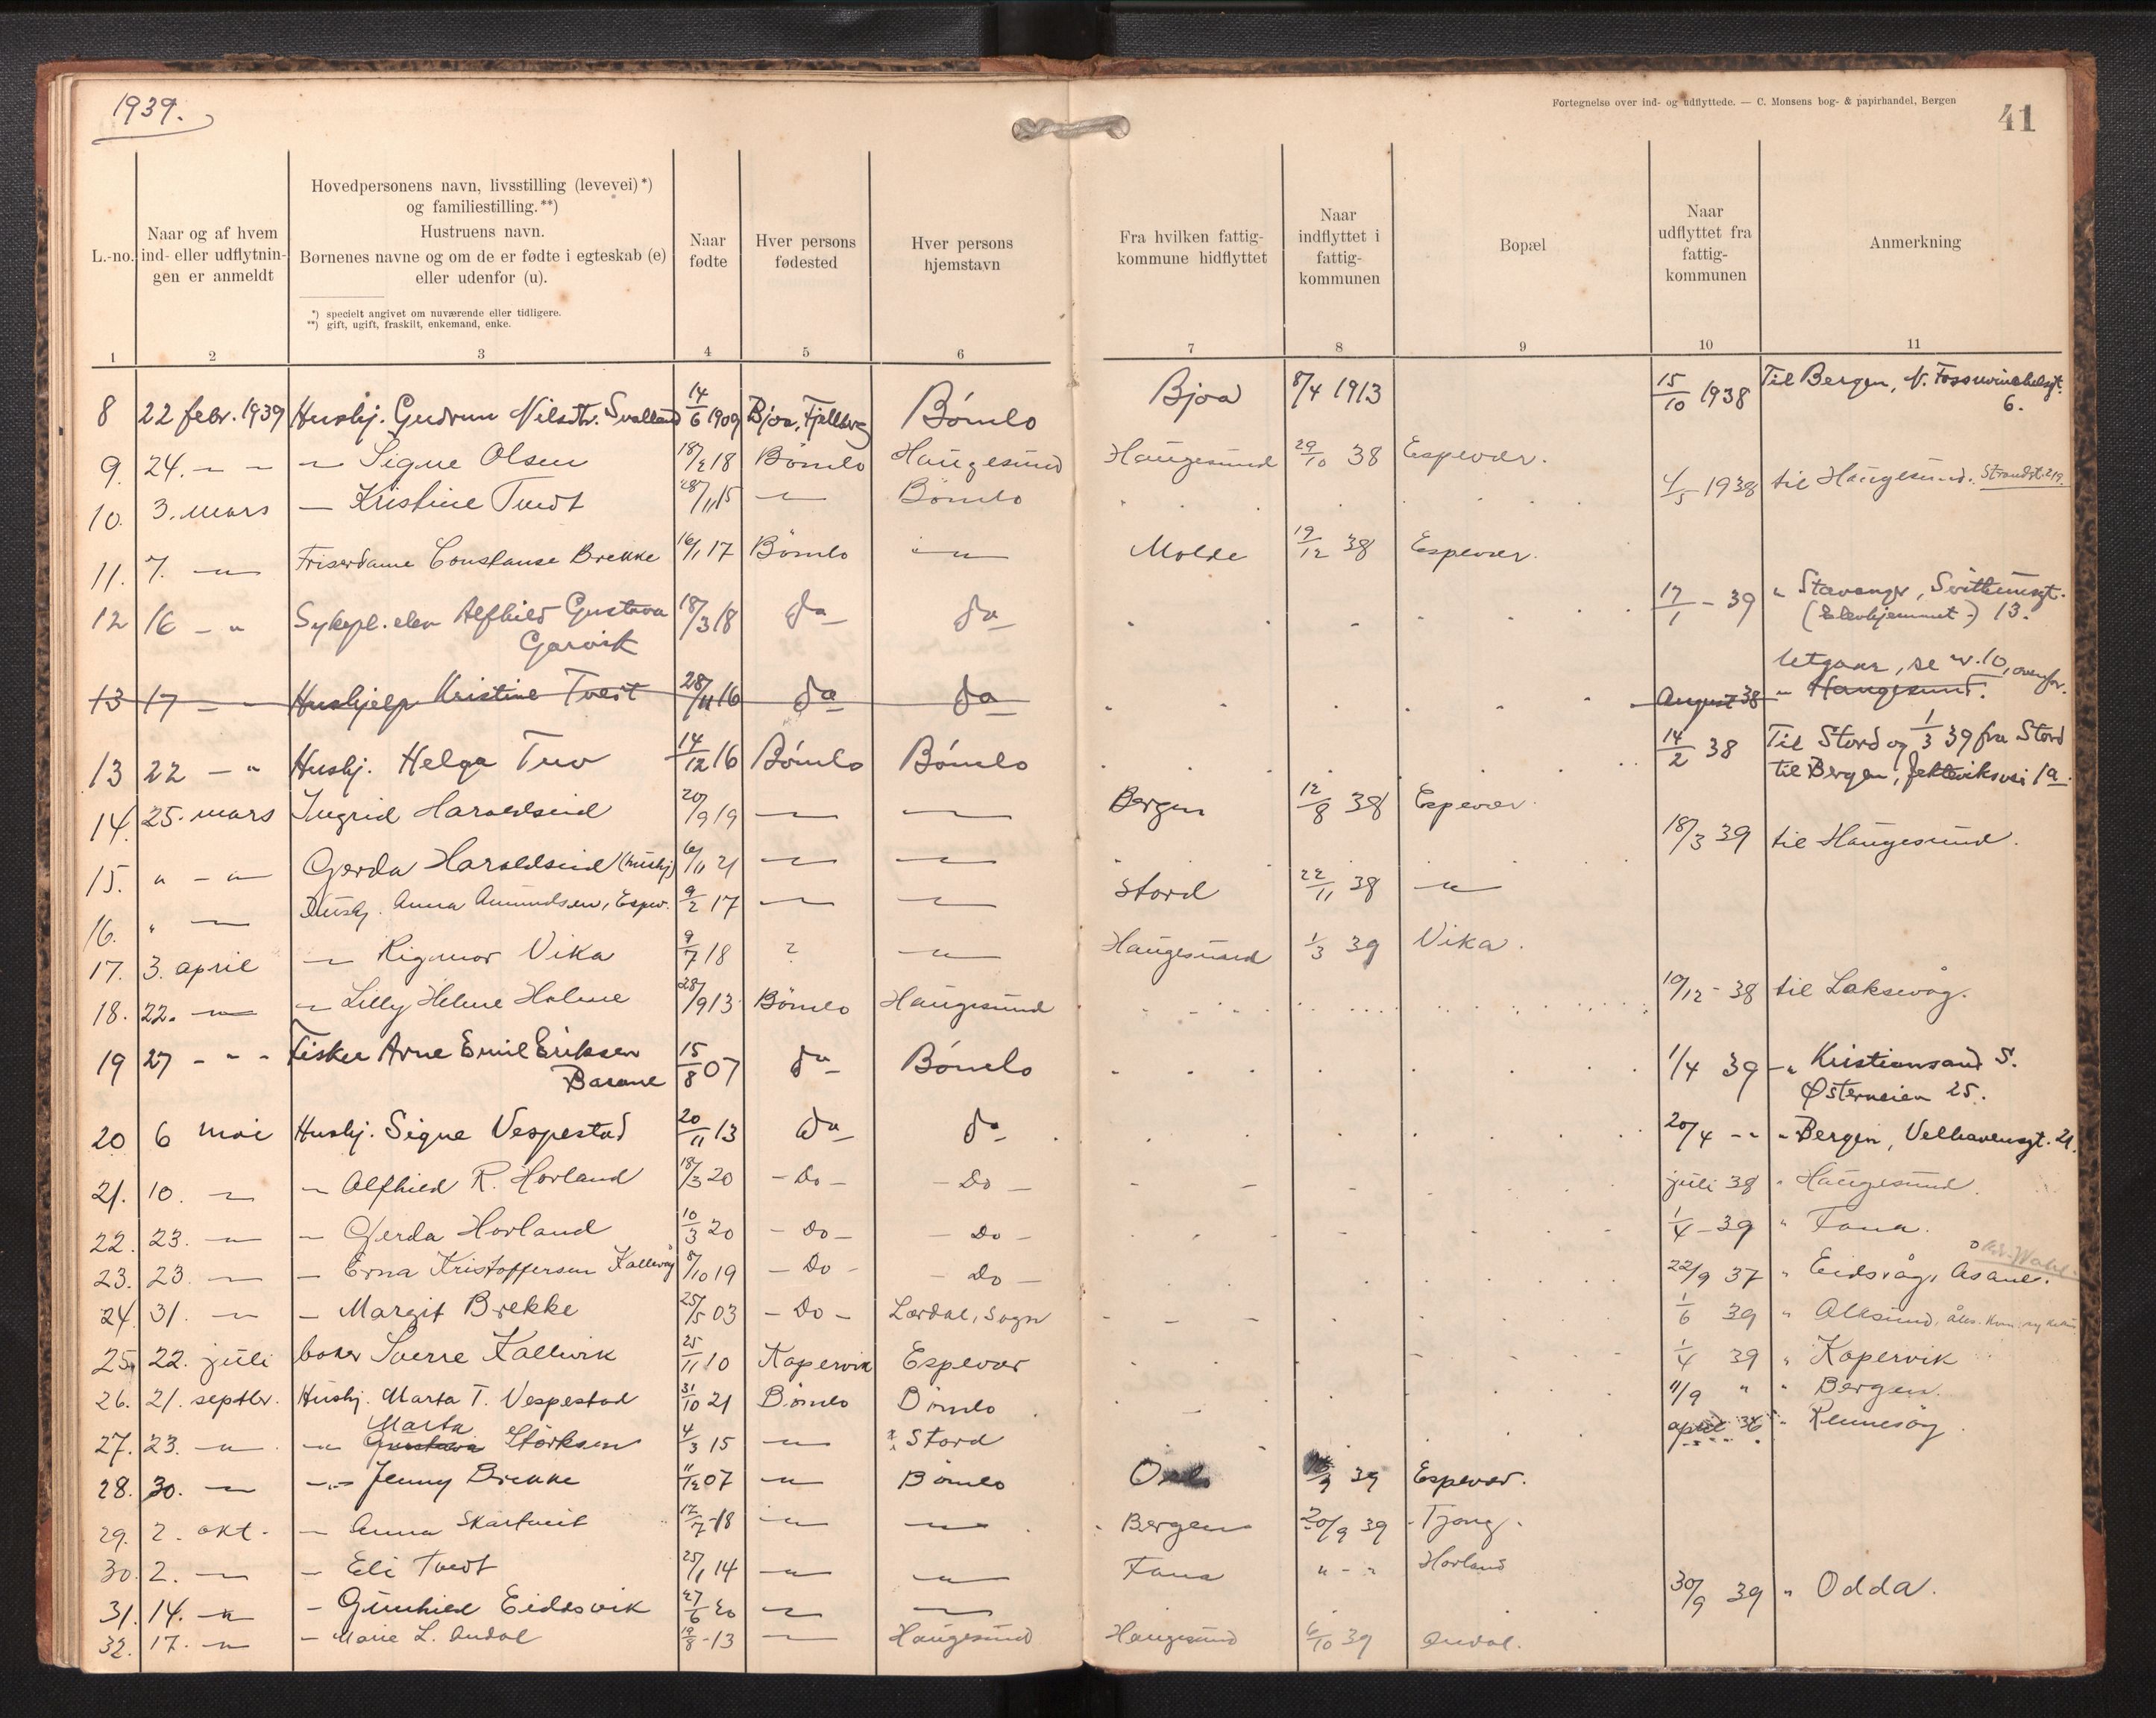 1939.
Fortegnelse over ind- og udflyttede. — C. Monsens bog- & papirhandel, Bergen
41
L.-no.
Naar og af hvem
ind- eller udflytnin-
gen er anmeldt
Hovedpersonens navn, livsstilling (levevei) *)
og familiestilling. **)
Hustruens navn.
Børnenes navne og om de er fødte i egteskab (e)
eller udenfor (u).
*) specielt angivet om nuværende eller tidligere.
**) gift, ugift, fraskilt, enkemand, enke.
Naar
fødte
Hver persons
fødested
Hver persons
hjemstavn
Fra hvilken fattig-
kommune hidflyttet
Naar
indflyttet i
fattig-
kommunen
Bopæl
Naar
udflyttet fra
fattig-
kommunen
Anmerkning
1 2 3 4 5 6 7 8 9 10 11
8 22 febr. 1939 Hushj. Gudrun Nilsdtr. Svalland 14/6 1909 Bjoa, Fjellberg Bömlo Bjoa 8/4 1913 15/10 1938 Til Bergen, N.
6.
9. 24. — — — Signe Olsen 18/2 18 Bömlo Haugesund Haugesund 29/10 38 Espevær.
10. 3. mars — Kristine Tvedt 28/11 15 — Bömlo 4/5 1938 til Haugesund. Strandgt. 219.
11. 7. — Friserdame Constanse Brekke 16/1 17 Bömlo — Molde 19/12 38 Espevær.
12 16 — " Sykepl. elev Alfhild Gustava 18/3 18 do do 17/1 - 39 " Stavanger,
Garvik (Elevhjemmet) 13.
Utgaar, se nr. 10, ovenfor.
13 17 — - Hushjelp Kristine Tvedt 28/11 16 do do August 38 " Haugesund.
13 22 — " Hushj. Helga Tuv 14/12 16 Bömlo Bömlo 14/2 38 Til Stord og 1/3 39 fra Stord
til Bergen, 1a.
14. 25. mars Ingrid Haraldseid 20/9 19 — — Bergen 12/8 38 Espevær.
15. " — " — Gerda Haraldseid (hushj) 6/11 21 — — 18/3 39 til Haugesund.
16. " — Hushj. Anna Amundsen, Espev. 9/2 17 — — Stord 22/11 38 — " —
17. 3. april — Rigmor Vika 9/7 18 ? — Haugesund 1/3 39 Vika.
18. 22. — — Lilly Helene Holme 28/9 13 Bömlo Haugesund 10/12 - 38 til Laksevåg.
19 27 - " - Fisker Arne Emil Eriksen 15/8 07 do Bömlo 1/4 39 — " Kristiansand S.
Barane Østerveien 25.
20 6 mai Hushj. Signe Vespestad 20/11 13 do do 20/4 - " " Bergen, Velhavensgt. 21.
21. 10. — — Alfhild R. Hovland 18/3 20 — Do — — Do — juli 38 " Haugesund.
22. 23. — — Gerda Hovland 10/3 20 — Do — — Do — 1/4 - 39 " Fana.
23. 23. — — Erna Kristoffersen Kallevåg 8/10 19 — Do — — Do — 22/9 37 " Eidsvåg, Åsane.
24. 31. — — Margit Brekke 25/5 03 — Do — Lærdal, Sogn 1/6 39 " Ålesund,
25. 22. juli baker Sverre Kallevik 25/11 10 Kopervik Espevær 1/4 39 " Kopervik
26. 21. septbr. Hushj. Marta T. Vespestad 31/10 21 Bömlo Bömlo 11/9 " " Bergen.
27. 23. — " — " — Gustava Marta Störksen 4/3 15 — " — Stord april 36 " Rennesöy
28. 30. — — " — Jenny Brekke 11/12 07 — " — Bömlo Oslo 39 Espevær.
29. 2. okt. — Anna Skartveit 12/7 - 18 — — Bergen 20/9 39 Tjong.
30. 2. — — Eli Tvedt 25/1 14 — " — — " — Fana " - " Hovland
31. 14. — " — Gunhild Eidesvik 27/6 20 — — 30/9 39 " Odda.
32. 17. — " — Marie L. Andal 19/8 - 13 — Haugesund Haugesund 6/10 39 Andal.